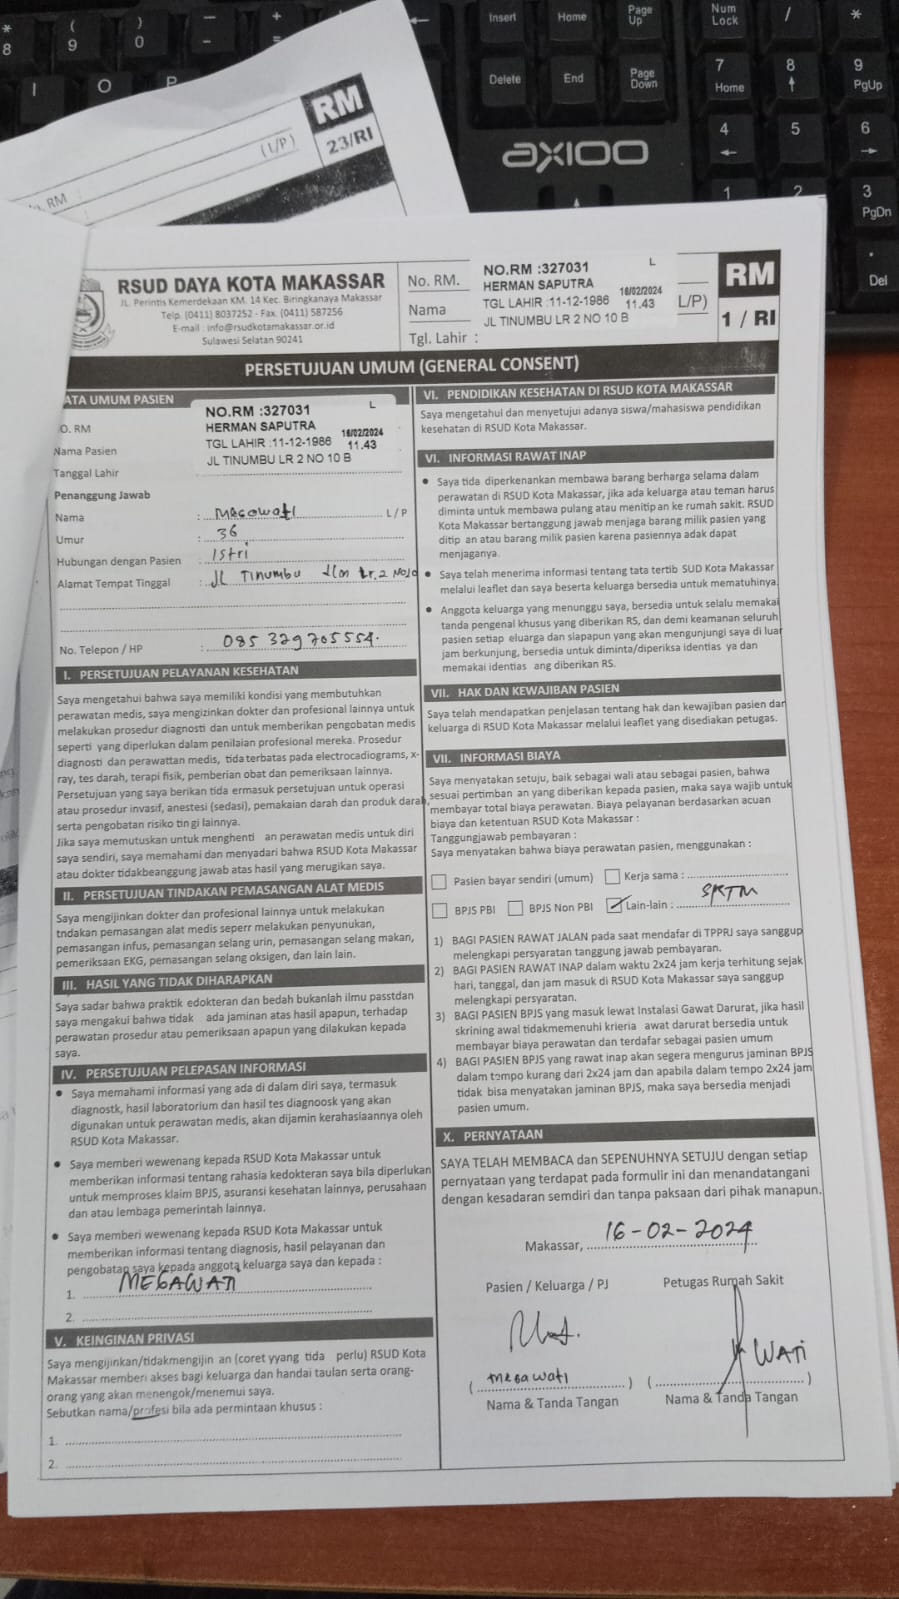 * 8
( 9
) 0
_ -
+ =
I
O
P
Insert
Home
Page Up
Num Lock
/
*
Delete
End
Page Down
7 Home
8
9 PgUp
4
5
6
1
2
3 PgDn
. Del
AXIOO
RM
23/RI
(L/P)
RM
RSUD DAYA KOTA MAKASSAR
JL. Perintis Kemerdekaan KM. 14 Kec. Biringkanaya Makassar
Telp. (0411) 8037252 - Fax. (0411) 587256
E-mail : info@rsudkotamakassar.or.id
Sulawesi Selatan 90241
No. RM.
Nama
Tgl. Lahir :
NO.RM :327031 L
HERMAN SAPUTRA 16/02/2024
TGL LAHIR :11-12-1986 11.43
JL TINUMBU LR 2 NO 10 B
L/P)
RM
1 / RI
PERSETUJUAN UMUM (GENERAL CONSENT)
ATA UMUM PASIEN
O. RM
Nama Pasien
Tanggal Lahir
NO.RM :327031 L
HERMAN SAPUTRA 16/02/2024
TGL LAHIR :11-12-1986 11.43
JL TINUMBU LR 2 NO 10 B
Penanggung Jawab
Nama : Megawati L / P
Umur : 36
Hubungan dengan Pasien : Istri
Alamat Tempat Tinggal : JL Tinumbu Lr.2
No. Telepon / HP : 085 329705554.
I. PERSETUJUAN PELAYANAN KESEHATAN
Saya mengetahui bahwa saya memiliki kondisi yang membutuhkan
perawatan medis, saya mengizinkan dokter dan profesional lainnya untuk
melakukan prosedur diagnosti dan untuk memberikan pengobatan medis
seperti yang diperlukan dalam penilaian profesional mereka. Prosedur
diagnosti dan perawattan medis, tida terbatas pada electrocadiograms, x-
ray, tes darah, terapi fisik, pemberian obat dan pemeriksaan lainnya.
Persetujuan yang saya berikan tida ermasuk persetujuan untuk operasi
atau prosedur invasif, anestesi (sedasi), pemakaian darah dan produk darah,
serta pengobatan risiko tin gi lainnya.
Jika saya memutuskan untuk menghenti an perawatan medis untuk diri
saya sendiri, saya memahami dan menyadari bahwa RSUD Kota Makassar
atau dokter tidakbeanggung jawab atas hasil yang merugikan saya.
II. PERSETUJUAN TINDAKAN PEMASANGAN ALAT MEDIS
Saya mengijinkan dokter dan profesional lainnya untuk melakukan
tndakan pemasangan alat medis seperr melakukan penyunukan,
pemasangan infus, pemasangan selang urin, pemasangan selang makan,
pemeriksaan EKG, pemasangan selang oksigen, dan lain lain.
III. HASIL YANG TIDAK DIHARAPKAN
Saya sadar bahwa praktik edokteran dan bedah bukanlah ilmu passtdan
saya mengakui bahwa tidak ada jaminan atas hasil apapun, terhadap
perawatan prosedur atau pemeriksaan apapun yang dilakukan kepada
saya.
IV. PERSETUJUAN PELEPASAN INFORMASI
• Saya memahami informasi yang ada di dalam diri saya, termasuk
diagnostk, hasil laboratorium dan hasil tes diagnoosk yang akan
digunakan untuk perawatan medis, akan dijamin kerahasiaannya oleh
RSUD Kota Makassar.
• Saya memberi wewenang kepada RSUD Kota Makassar untuk
memberikan informasi tentang rahasia kedokteran saya bila diperlukan
untuk memproses klaim BPJS, asuransi kesehatan lainnya, perusahaan
dan atau lembaga pemerintah lainnya.
• Saya memberi wewenang kepada RSUD Kota Makassar untuk
memberikan informasi tentang diagnosis, hasil pelayanan dan
pengobatan saya kepada anggota keluarga saya dan kepada :
1. MEGAWATI
2.
V. KEINGINAN PRIVASI
Saya mengijinkan/tidakmengijin an (coret yyang tida perlu) RSUD Kota
Makassar memberi akses bagi keluarga dan handai taulan serta orang-
orang yang akan menengok/menemui saya.
Sebutkan nama/profesi bila ada permintaan khusus :
1.
2.
VI. PENDIDIKAN KESEHATAN DI RSUD KOTA MAKASSAR
Saya mengetahui dan menyetujui adanya siswa/mahasiswa pendidikan
kesehatan di RSUD Kota Makassar.
VI. INFORMASI RAWAT INAP
• Saya tida diperkenankan membawa barang berharga selama dalam
perawatan di RSUD Kota Makassar, jika ada keluarga atau teman harus
diminta untuk membawa pulang atau menitip an ke rumah sakit. RSUD
Kota Makassar bertanggung jawab menjaga barang milik pasien yang
ditip an atau barang milik pasien karena pasiennya adak dapat
menjaganya.
• Saya telah menerima informasi tentang tata tertib SUD Kota Makassar
melalui leaflet dan saya beserta keluarga bersedia untuk mematuhinya.
• Anggota keluarga yang menunggu saya, bersedia untuk selalu memakai
tanda pengenal khusus yang diberikan RS, dan demi keamanan seluruh
pasien setiap eluarga dan siapapun yang akan mengunjungi saya di luar
jam berkunjung, bersedia untuk diminta/diperiksa identias ya dan
memakai identias ang diberikan RS.
VII. HAK DAN KEWAJIBAN PASIEN
Saya telah mendapatkan penjelasan tentang hak dan kewajiban pasien dan
keluarga di RSUD Kota Makassar melalui leaflet yang disediakan petugas.
VII. INFORMASI BIAYA
Saya menyatakan setuju, baik sebagai wali atau sebagai pasien, bahwa
sesuai pertimban an yang diberikan kepada pasien, maka saya wajib untuk
membayar total biaya perawatan. Biaya pelayanan berdasarkan acuan
biaya dan ketentuan RSUD Kota Makassar :
Tanggungjawab pembayaran :
Saya menyatakan bahwa biaya perawatan pasien, menggunakan :
Pasien bayar sendiri (umum) Kerja sama :
BPJS PBI BPJS Non PBI Lain-lain : SKTM
1) BAGI PASIEN RAWAT JALAN pada saat mendafar di TPPRJ saya sanggup
melengkapi persyaratan tanggung jawab pembayaran.
2) BAGI PASIEN RAWAT INAP dalam waktu 2x24 jam kerja terhitung sejak
hari, tanggal, dan jam masuk di RSUD Kota Makassar saya sanggup
melengkapi persyaratan.
3) BAGI PASIEN BPJS yang masuk lewat Instalasi Gawat Darurat, jika hasil
skrining awal tidakmemenuhi krieria awat darurat bersedia untuk
membayar biaya perawatan dan terdafar sebagai pasien umum
4) BAGI PASIEN BPJS yang rawat inap akan segera mengurus jaminan BPJS
dalam tempo kurang dari 2x24 jam dan apabila dalam tempo 2x24 jam
tidak bisa menyatakan jaminan BPJS, maka saya bersedia menjadi
pasien umum.
X. PERNYATAAN
SAYA TELAH MEMBACA dan SEPENUHNYA SETUJU dengan setiap
pernyataan yang terdapat pada formulir ini dan menandatangani
dengan kesadaran semdiri dan tanpa paksaan dari pihak manapun.
Makassar, 16-02-2024
Pasien / Keluarga / PJ
Petugas Rumah Sakit
WATI
( Megawati )
( )
Nama & Tanda Tangan
Nama & Tanda Tangan